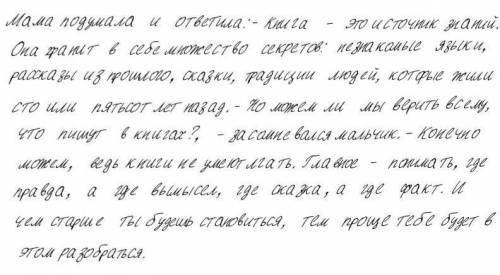 Мама подумала и ответила: - Книга - это источник знаний.
Она хранит в себе множество секретов: незнакомые языки,
рассказы из прошлого, сказки, традиции людей, которые жили
сто или пятьсот лет назад. - Но можем ли мы верить всему,
что пишут в книгах?, - засомневался мальчик. - Конечно
можем, ведь книги не умеют лгать. Главное - понимать, где
правда, а где вымысел, где сказка, а где факт. И
чем старше ты будешь становиться, тем проще тебе будет в
этом разобраться.